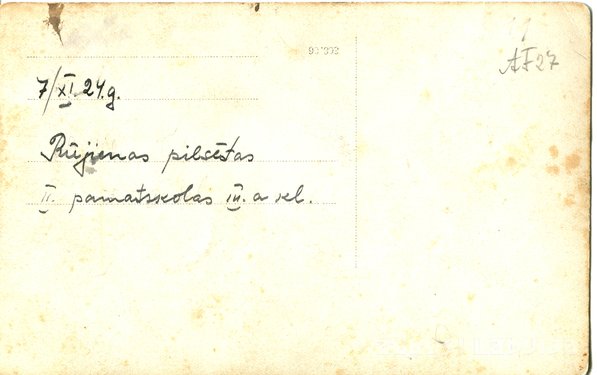 AF27
7/XI 24.g.
Rūjienas pilsētas
II. pamatskolas III. a kl.